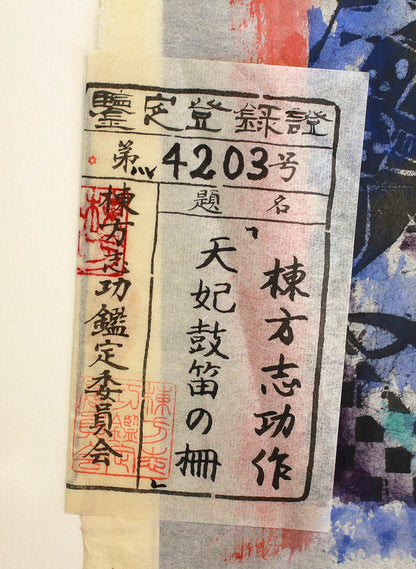 鑑定登録證
第4203号
題名
棟方志功作
「天妃鼓笛の柵」
棟方志功鑑定委員会